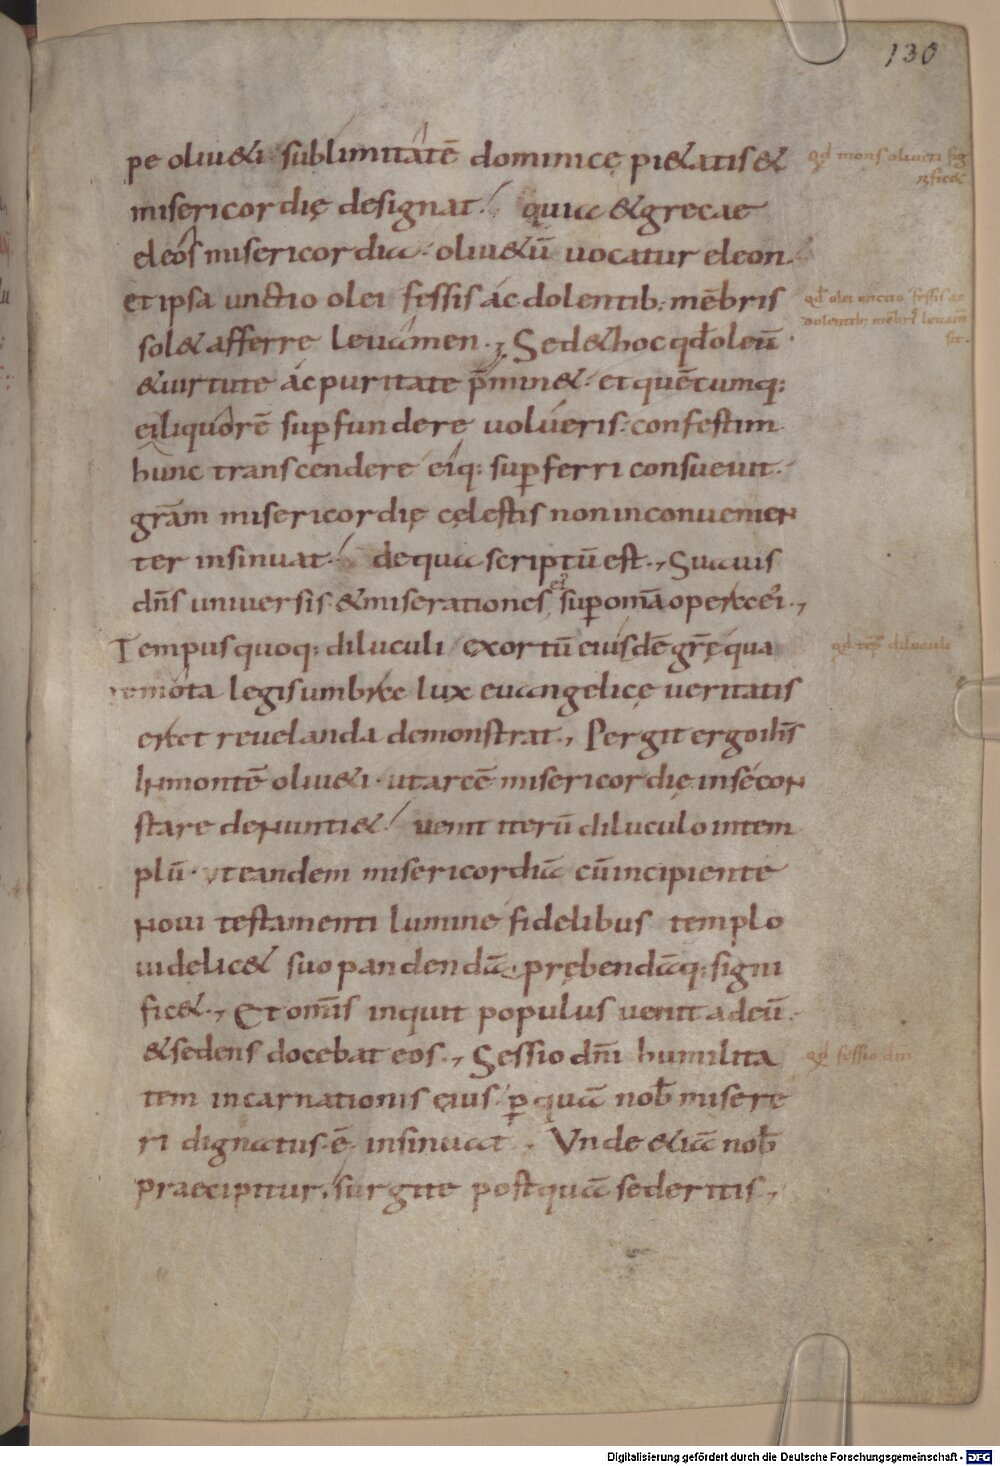 130
pe oliu&i sublimitatē dominicę pi&atis &
misericordię designat. quia & grecae
eleos misericordia. oliu&ū uocatur eleon.
et ipsa unctio olei fessis ac dolentib; mēbris
sol& afferre leuamen. Sed & hoc qđ oleū
& uirtute ac puritate p̄min&. et quēcumq;
ei liquorē suꝑfundere uolueris. confestim
hunc transcendere eiq; suꝑferri consueuit.
gr̄am misericordię cęlestis non inconuenien
ter insinuat. de qua scriptū est., Suauis
dn̄s uniuersis & miserationes ei' suꝑ om̄a opera ei'.,
Tempus quoq; diluculi exortū eiusdē gr̄ę qua
remota legis umbra lux euangelicę ueritatis
erat reuelanda demonstrat., Pergit ergo ih̄s
in montē oliu&i. ut arcē misericordię in se con
stare denunti& uenit iterū diluculo in tem
plū. ut eandem misericordiā cū incipiente
noui testamenti lumine fidelibus templo
uidelic& suo pandendā. prębendāq; signi
fic&., Et om̄is inquit populus uenit ad eū.
& sedens docebat eos., Sessio dn̄i humilita
tem incarnationis eius. ꝑ quā nob̄ misere
ri dignatus. ē. insinuat., Vnde & iā nob̄
praecipitur, surgite postquā sederitis,
qđ mons oliueti sig
nific&
qđ olei unctio fessis ac
dolentib; mēbris leuam̄
sit.
qđ tēp̄s diluculi
qđ sessio dn̄i
Digitalisierung gefördert durch die Deutsche Forschungsgemeinschaft - DFG